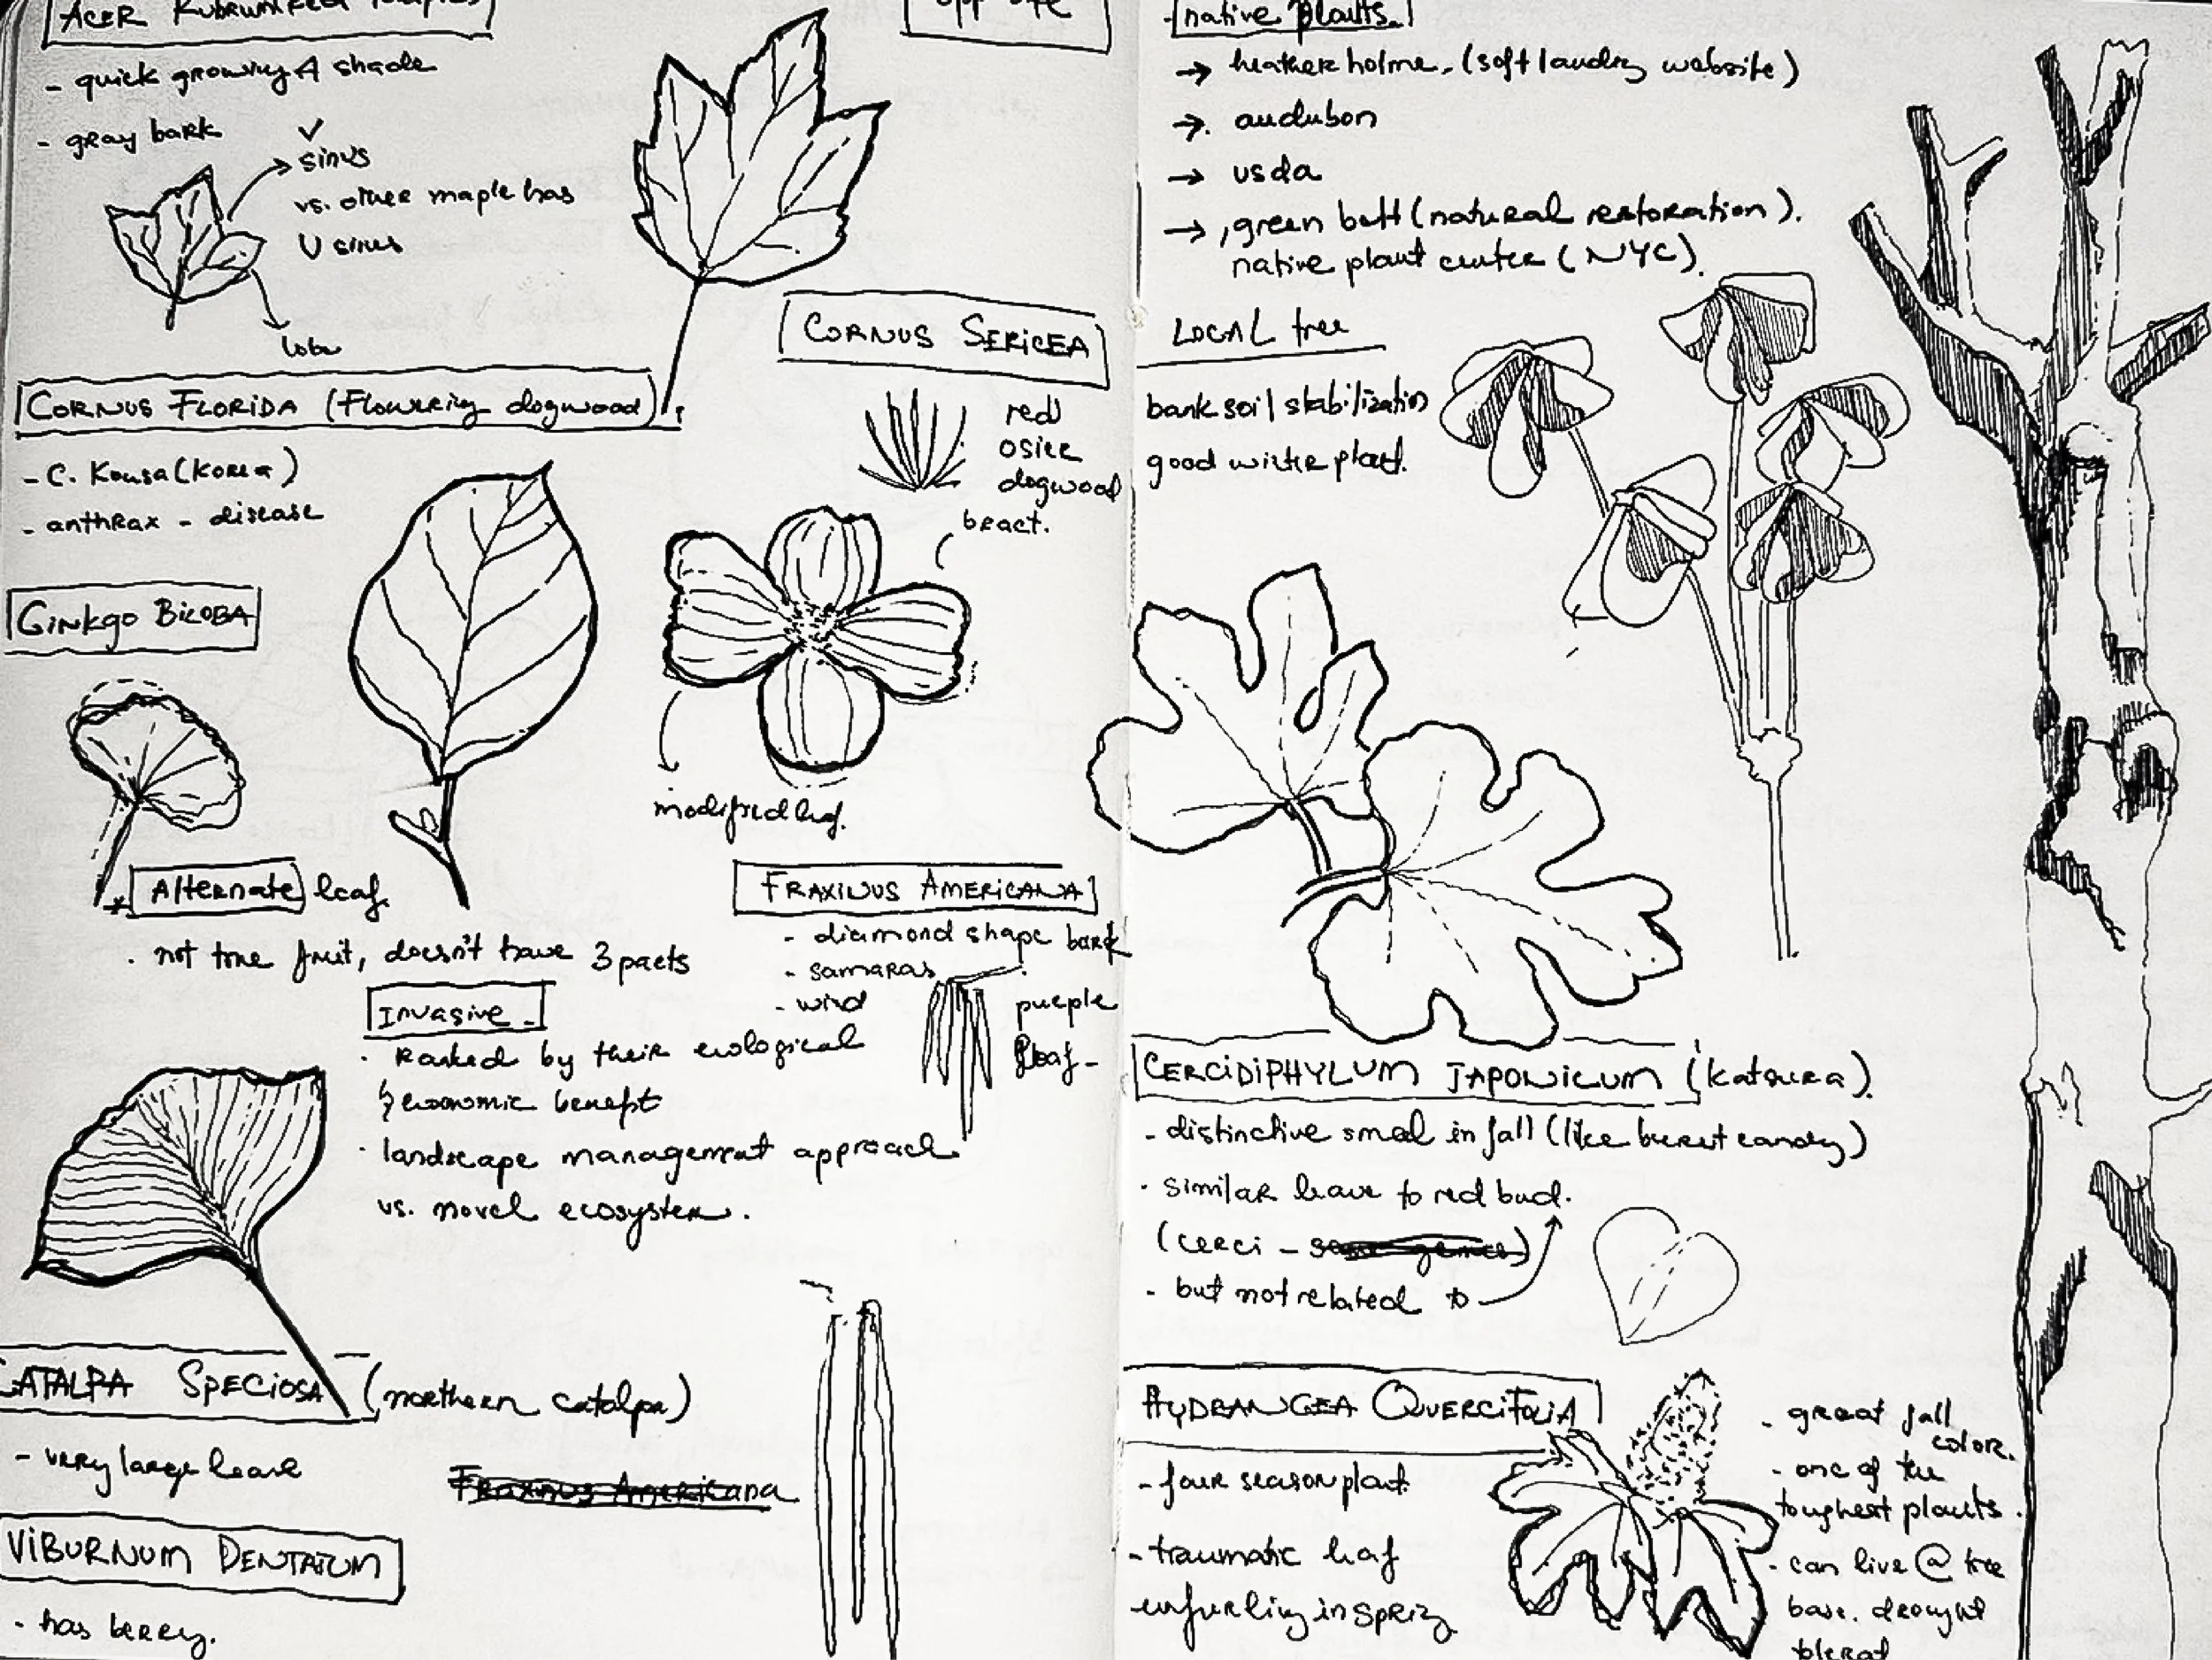 ACER RUBRUM (RED maple)
- quick growing A shade
- gray bark
V
sinus
vs. other maple has
U sinus
lobe
opposite
CORNUS SERICEA
red
osier
dogwood
bract.
CORNUS FLORIDA (Flowering dogwood)
- C. Kousa (Korea)
- anthrax - disease
modified leaf.
GINKGO BILOBA
* Alternate leaf
. not true fruit, doesn't have 3 parts
FRAXINUS AMERICANA
- diamond shape bark
- samaras
- wind
purple
leaf -
Invasive -
. Ranked by their ecological
& economic benefit
. landscape management approach
vs. novel ecosystem.
CATALPA SPECIOSA (northern catalpa)
- very large leave
Fraxinus Americana
VIBURNUM DENTATUM
. has berry.
native plants.
→ heather holme. (soft landing website)
→ audubon
→ usda
→ green belt (natural restoration).
native plant center (NYC).
LOCAL tree
bank soil stabilization
good winter plant.
CERCIDIPHYLUM JAPONICUM (katsura).
- distinctive smell in fall (like burnt candy)
. similar leave to red bud.
(cerci - same genus)
- but not related to
HYDRANGEA QUERCIFOLIA
- four season plant
- traumatic leaf
unfurling in spring
- great fall
color.
- one of the
toughest plants.
. can live @ tree
base. drought
tolerant